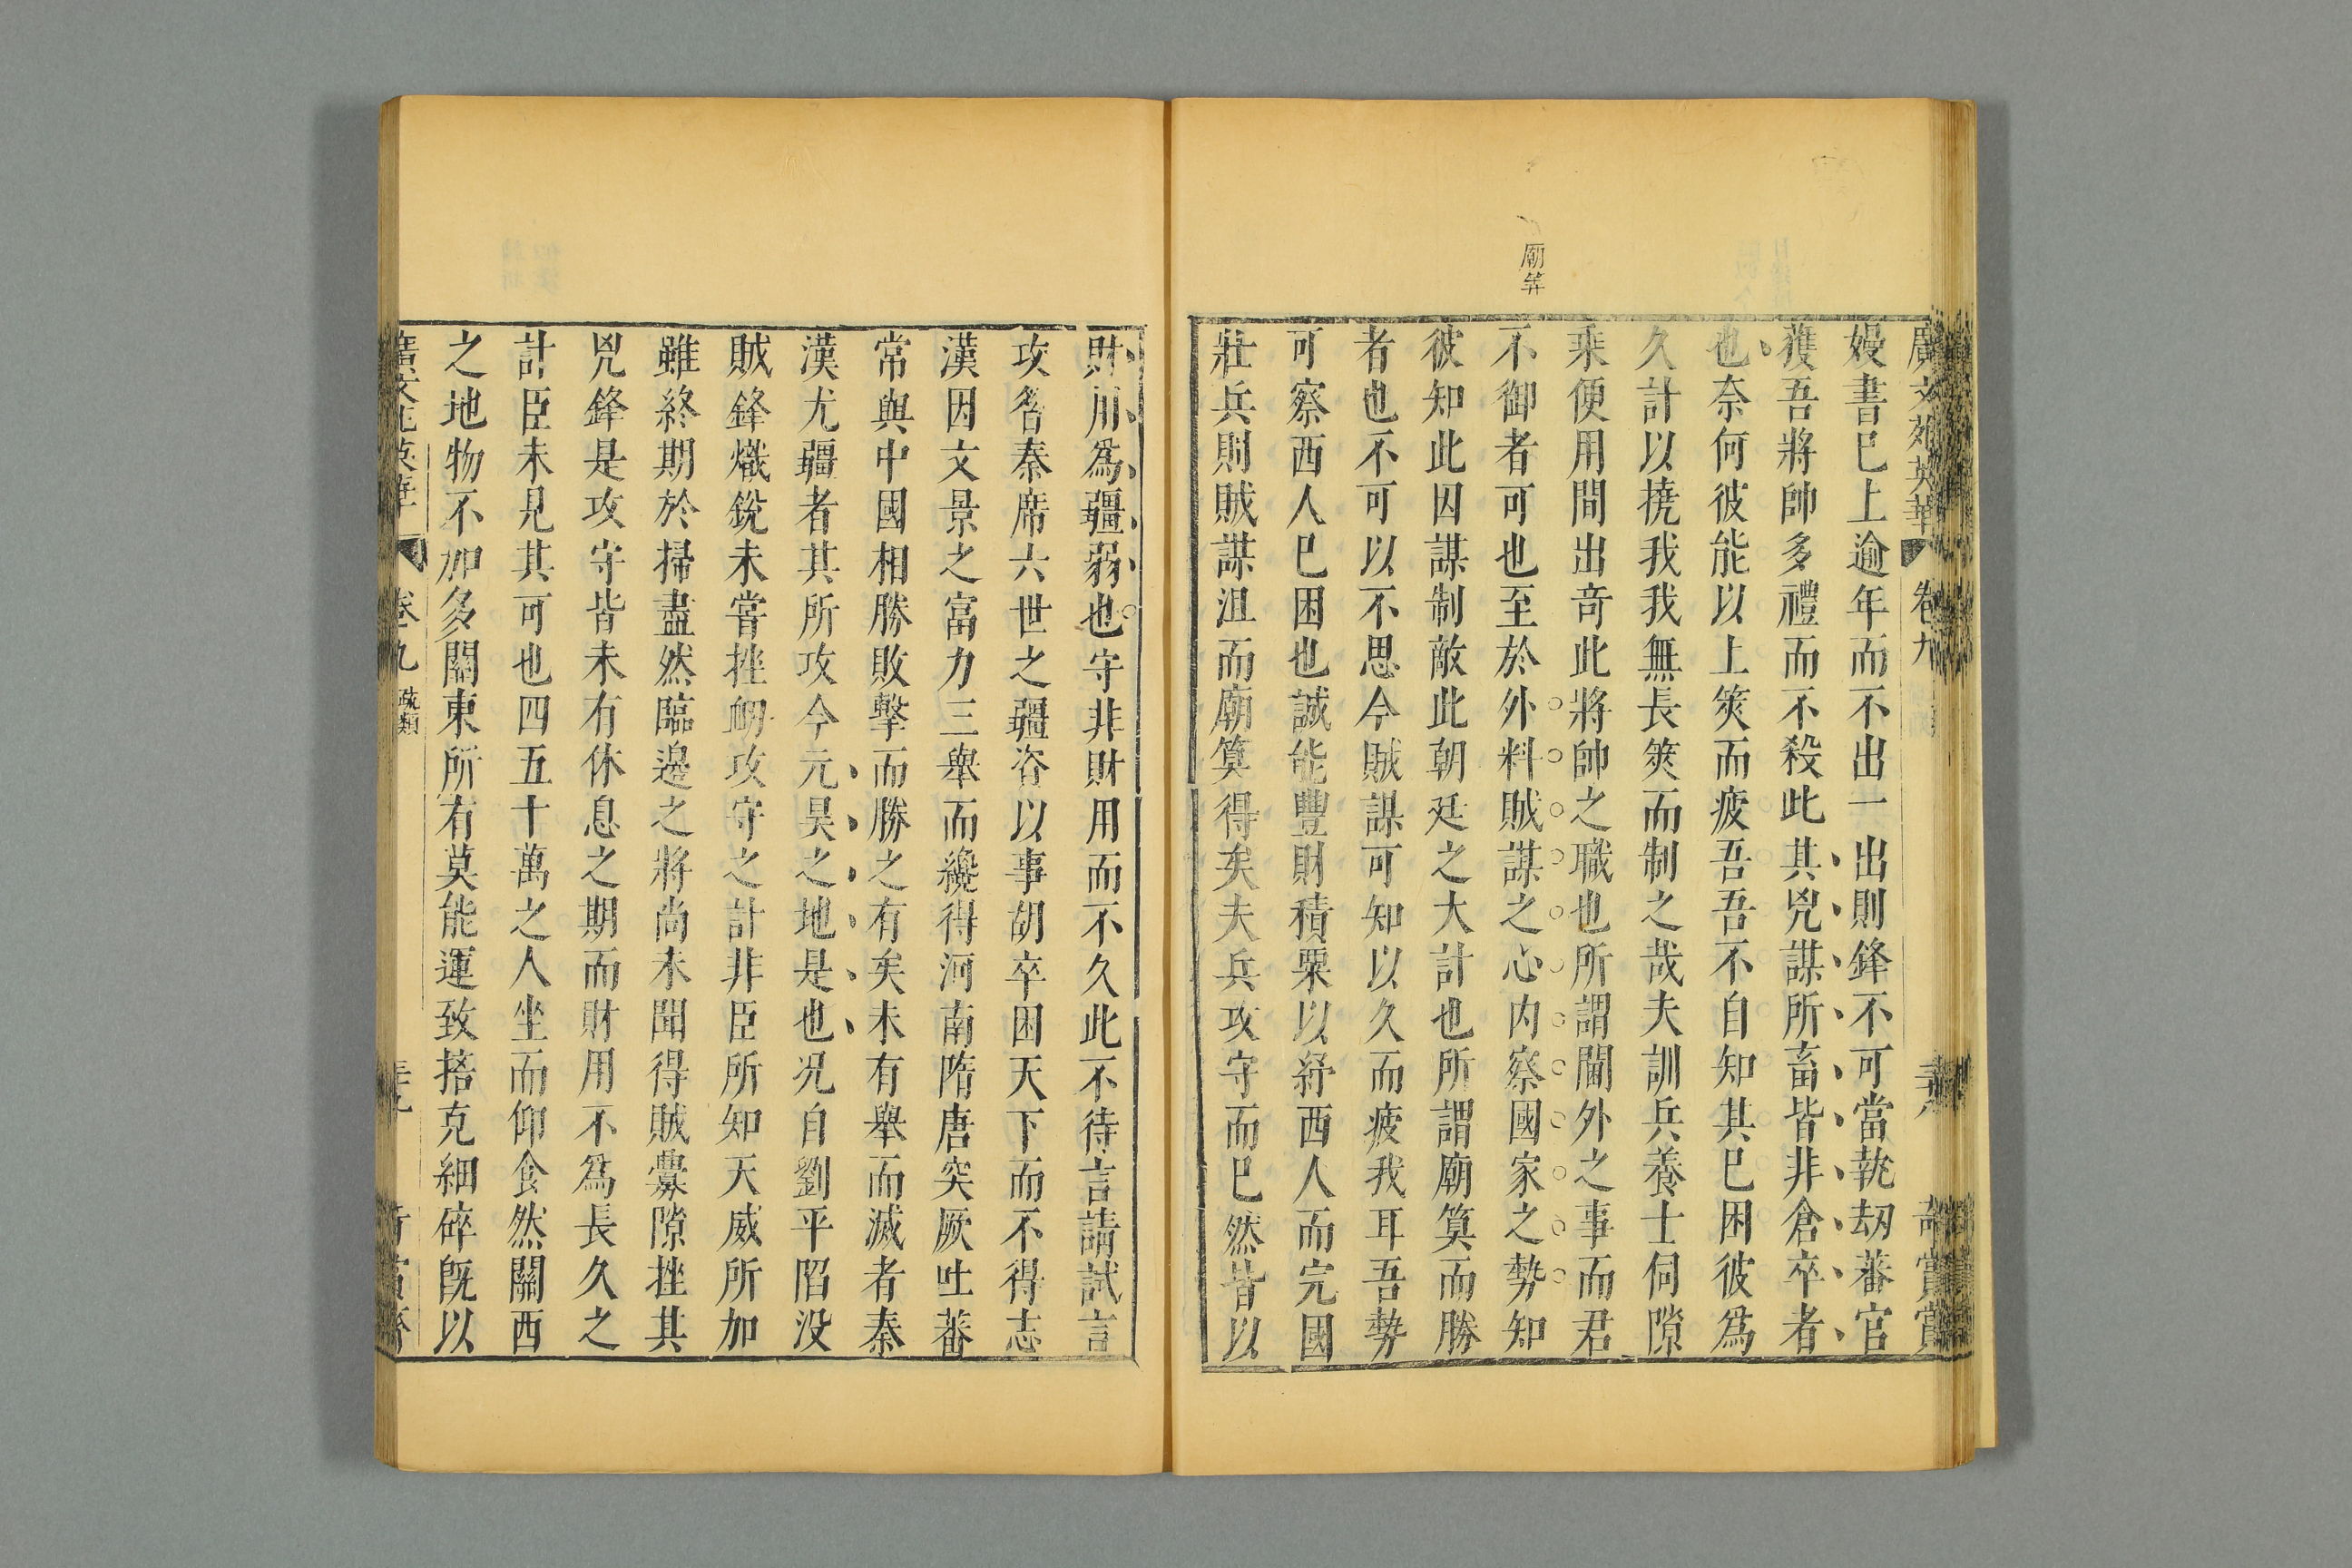 廟筭
廣文苑英華 卷九 奇賞
嫚書巳上逾年而不出一出則鋒不可當執刼蕃官
獲吾將帥多禮而不殺此其兇謀所畜皆非倉卒者
也奈何彼能以上筴而疲吾吾不自知其巳困彼爲
久計以撓我我無長筴而制之哉夫訓兵養士伺隙
乘便用間出竒此將帥之職也所謂閫外之事而君
不御者可也至於外料賊謀之心内察國家之勢知
彼知此因謀制敵此朝廷之大計也所謂廟筭而勝
者也不可以不思今賊謀可知以久而疲我耳吾勢
可察西人巳困也誠能豐財積粟以紓西人而完國
壯兵則賊謀沮而廟筭得矣夫兵攻守而巳然皆以
財用爲疆弱也守非財用而不久此不待言請試言
攻昝秦席六世之疆咨以事胡卒困天下而不得志
漢因文景之富力三舉而纔得河南隋唐突厥吐蕃
常與中國相勝敗擊而勝之有矣未有舉而滅者秦
漢尤疆者其所攻今元昊之地是也况自劉平陷没
賊鋒熾銳未嘗挫衂攻守之計非臣所知天威所加
雖終期於掃盡然臨邊之將尚未聞得賊釁隙挫其
兇鋒是攻守皆未有休息之期而財用不爲長久之
計臣未見其可也四五十萬之人坐而仰食然關西
之地物不加多關東所有莫能運致掊克細碎旣以
廣文苑英華 卷九 疏類 奇賞齋